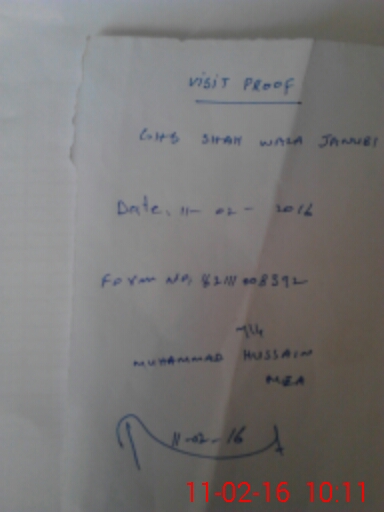 VISIT PROOF
GHS SHAH WALA JANUBI
Date. 11-02-2016
Form No.
MUHAMMAD HUSSAIN
MEA
11-02-16
11-02-16 10:11